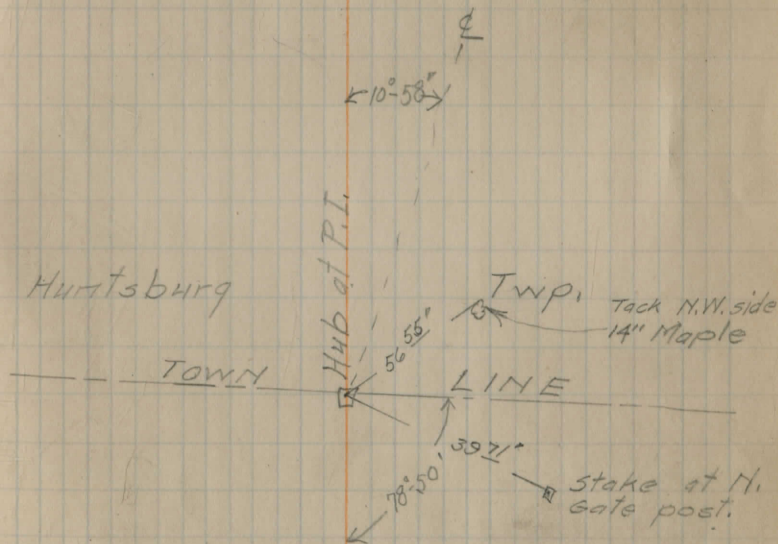 ℄
10°-58'
Hub at P.I.
Huntsburg
Twp.
Tack N.W. side
14" Maple
56 55'
TOWN LINE
39 71'
78°-50'
Stake at N.
Gate post.